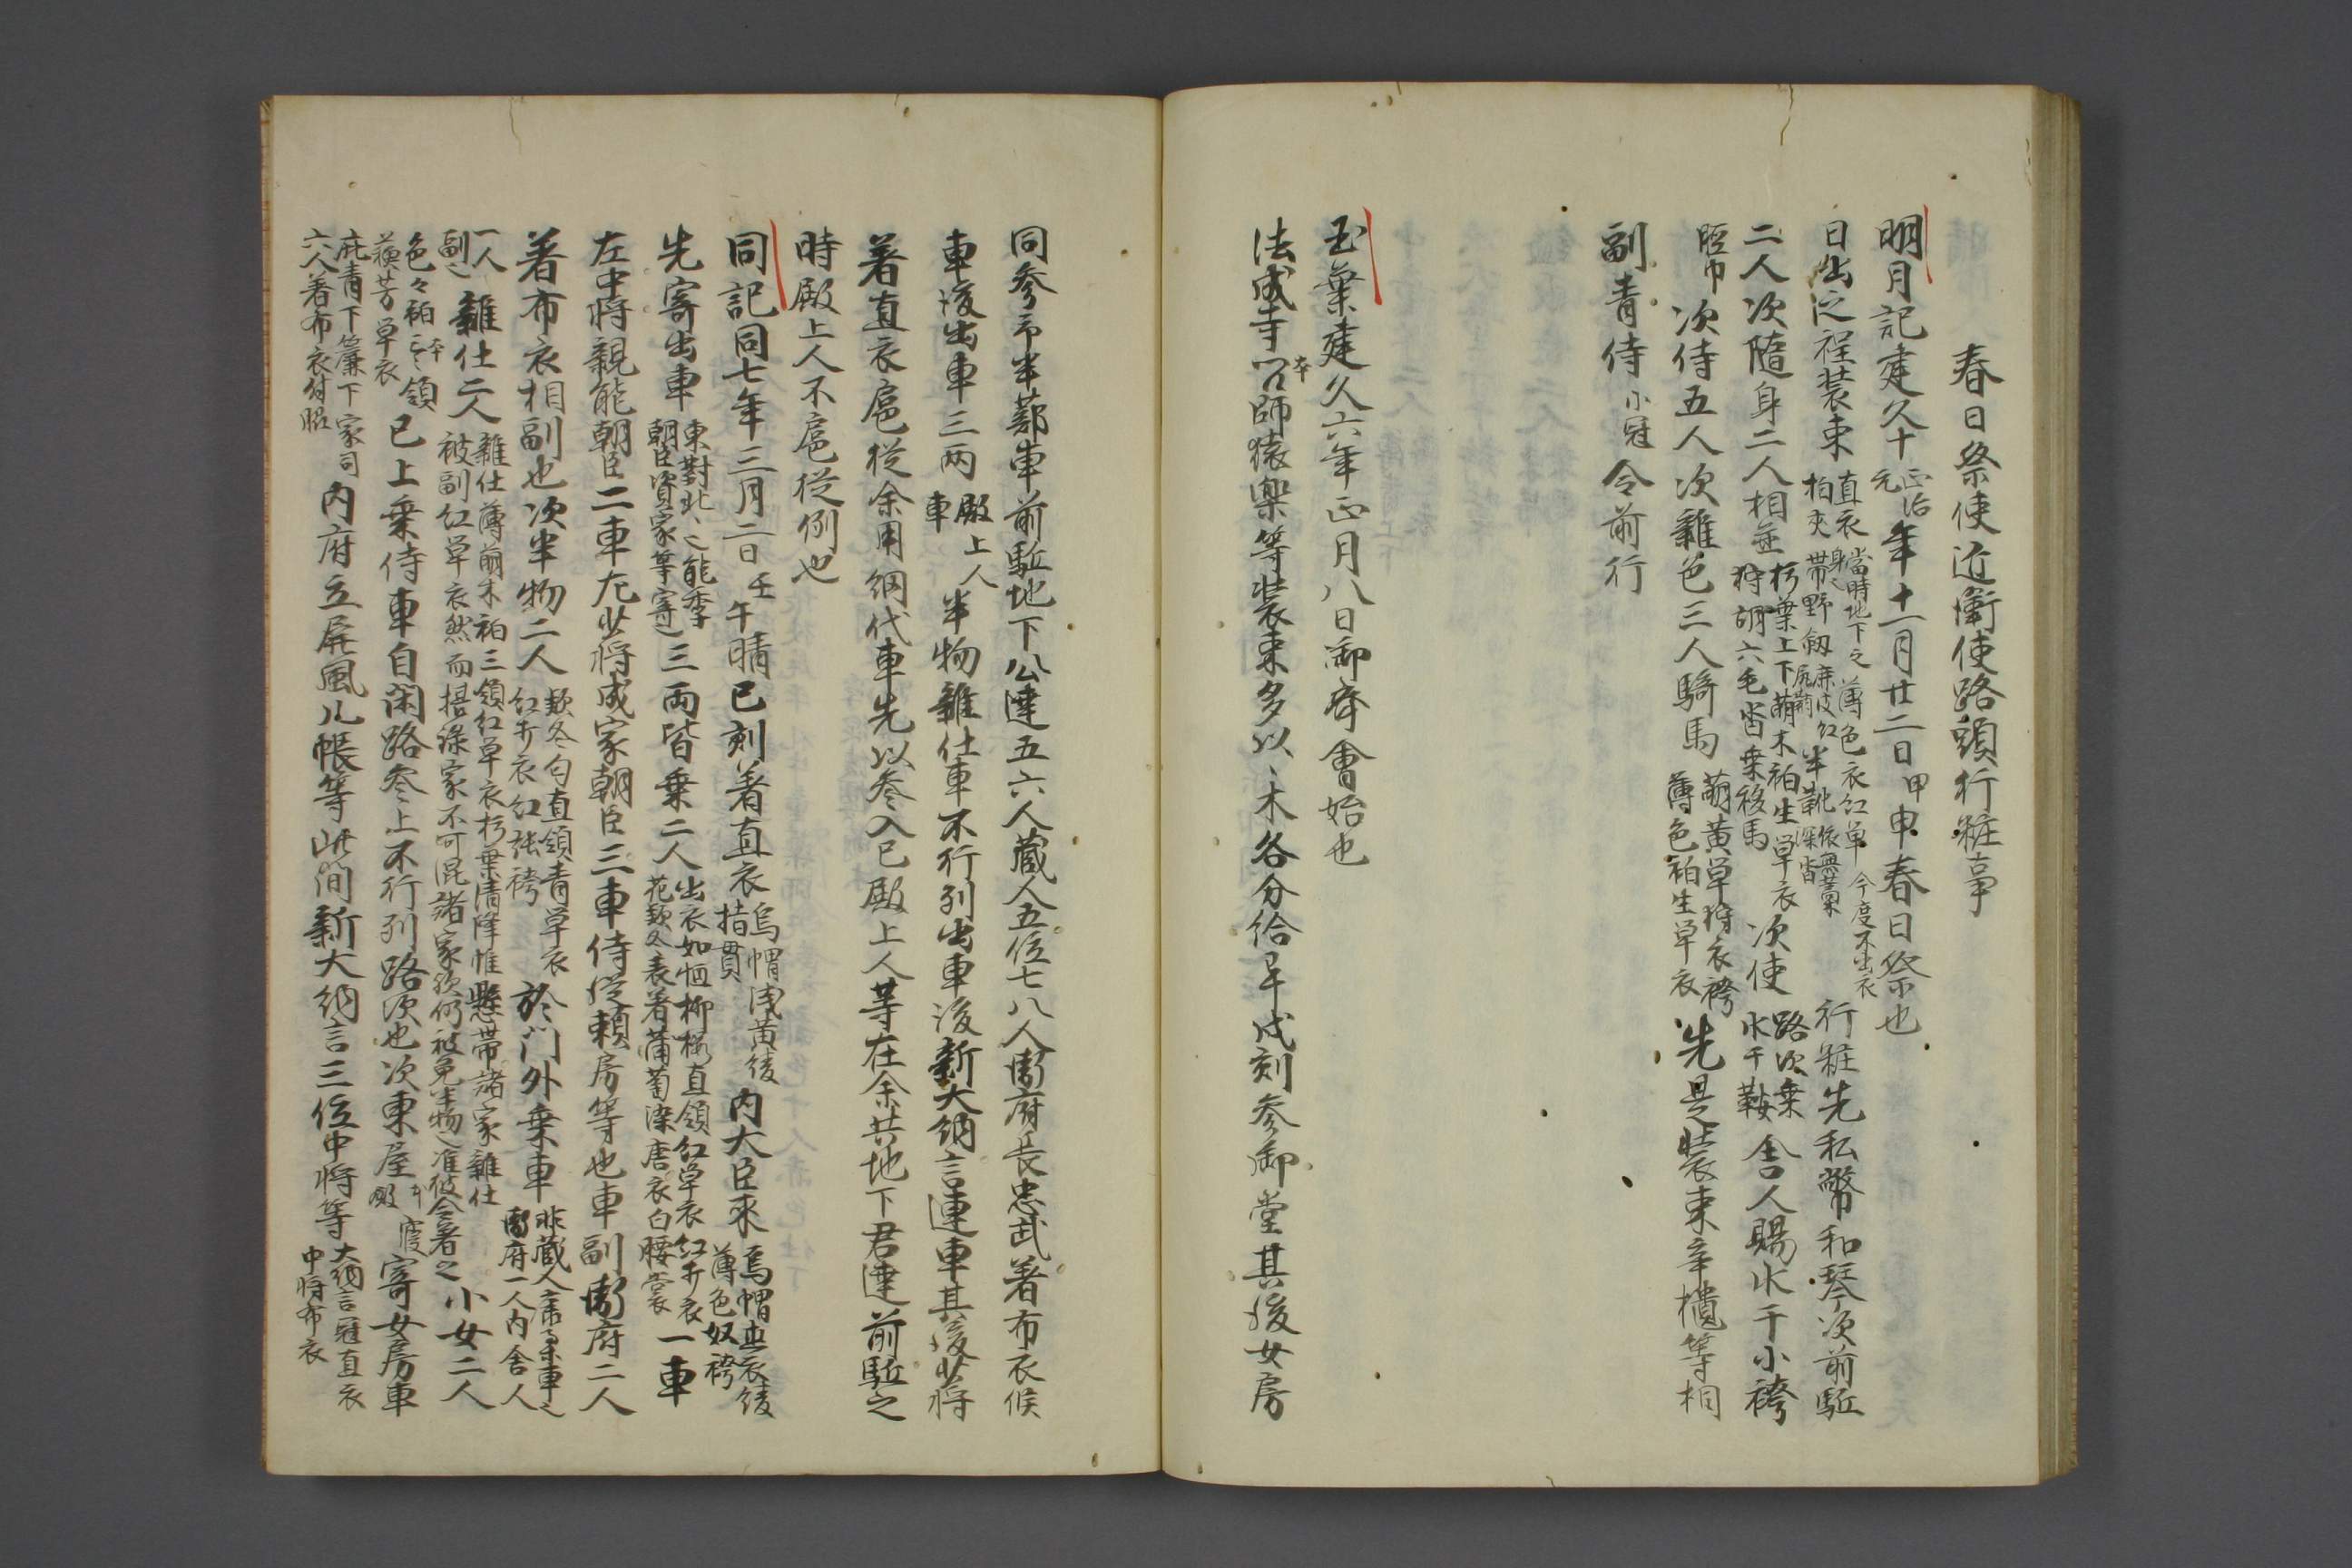 春日祭使近衛使路頭行粧事
明月記建久十正治元年十一月廿二日甲申春日祭也
日出之程装束直衣當時地下之身薄色衣紅単今度不出衣柏夾帯野釼半靴深沓行粧先私幣和琴次前駈
二人次隨身二人相並朽葉上下萠木袙生単衣狩胡六毛沓乗移馬次使路次乗水干鞍舎人賜水干小袴
次侍五人次雜色三人騎馬萠黄単狩衣袴薄色袙生単衣先是装束辛櫃等相
副青侍小冠令前行
玉葉建久六年正月八日御齊會始也
法成寺呪師猿樂等装束多以各分給早戌刻参御堂其後女房
同参予半蔀車前駈地下公達五六人蔵人五位七八人衛府長忠武著布衣候
車後出車三両殿上人車半物雜仕車不行列出車後新大納言連車其後少将
著直衣扈従余用網代車先以参入已殿上人等在余共地下君達前駈之
時殿上人不扈従例也
同記同七年三月二日壬午晴已刻著直衣烏帽浅黄綾指貫内大臣来烏帽直衣綾薄色奴袴
先寄出車東對北能季朝臣資家等寄三両皆乗二人出衣如恒柳桜直領紅単衣紅打衣花款冬表著蒲萄染唐衣白腰裳一車
左中将親能朝臣二車左少将成家朝臣三車侍従頼房等也車副衛府二人
著布衣相副也次半物二人款冬匂直領青単衣紅打衣紅張袴於門外乗車非蔵人衛府一人内舎人
一人副之雜仕二人雜仕薄萠木袙三領紅単衣朽葉清隆帷懸帯諸家雜仕被副紅単衣然而摂籙家不可混諸家仍被免半物准彼令著之小女二人
色々袙領蘓芳単衣已上乗侍車自閑路参上不行列路次也次東屋寄女房車
庇青下簾下家司六人著布衣付昭内府立屏風几帳等此間新大納言三位中将等大納言冠直衣中将布衣